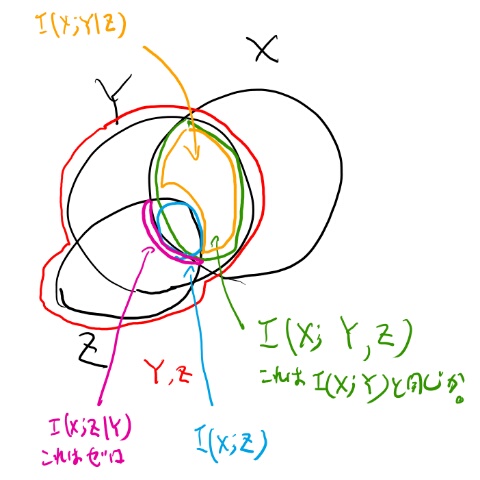 I(X;Y|Z)
X
Y
Z
Y,Z
I(X; Y,Z)
これは I(X;Y)と同じか。
I(X;Z|Y)
これはゼロ
I(X;Z)